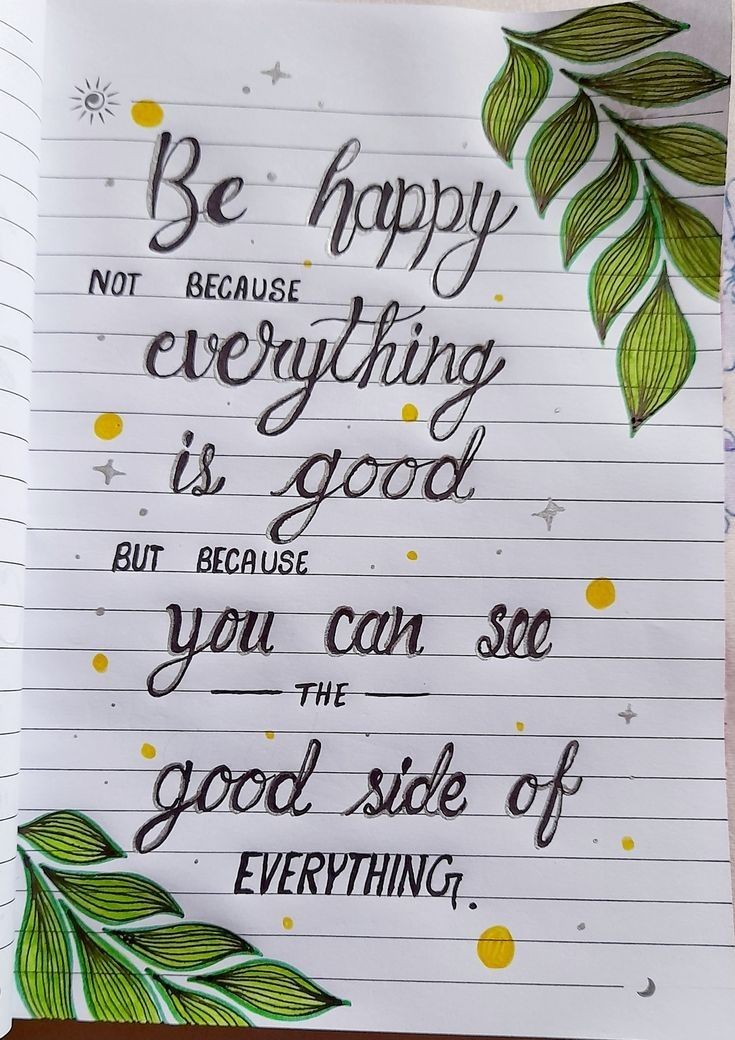 Be happy
NOT BECAUSE
everything
is good
BUT BECAUSE
you can see
THE
good side of
EVERYTHING.